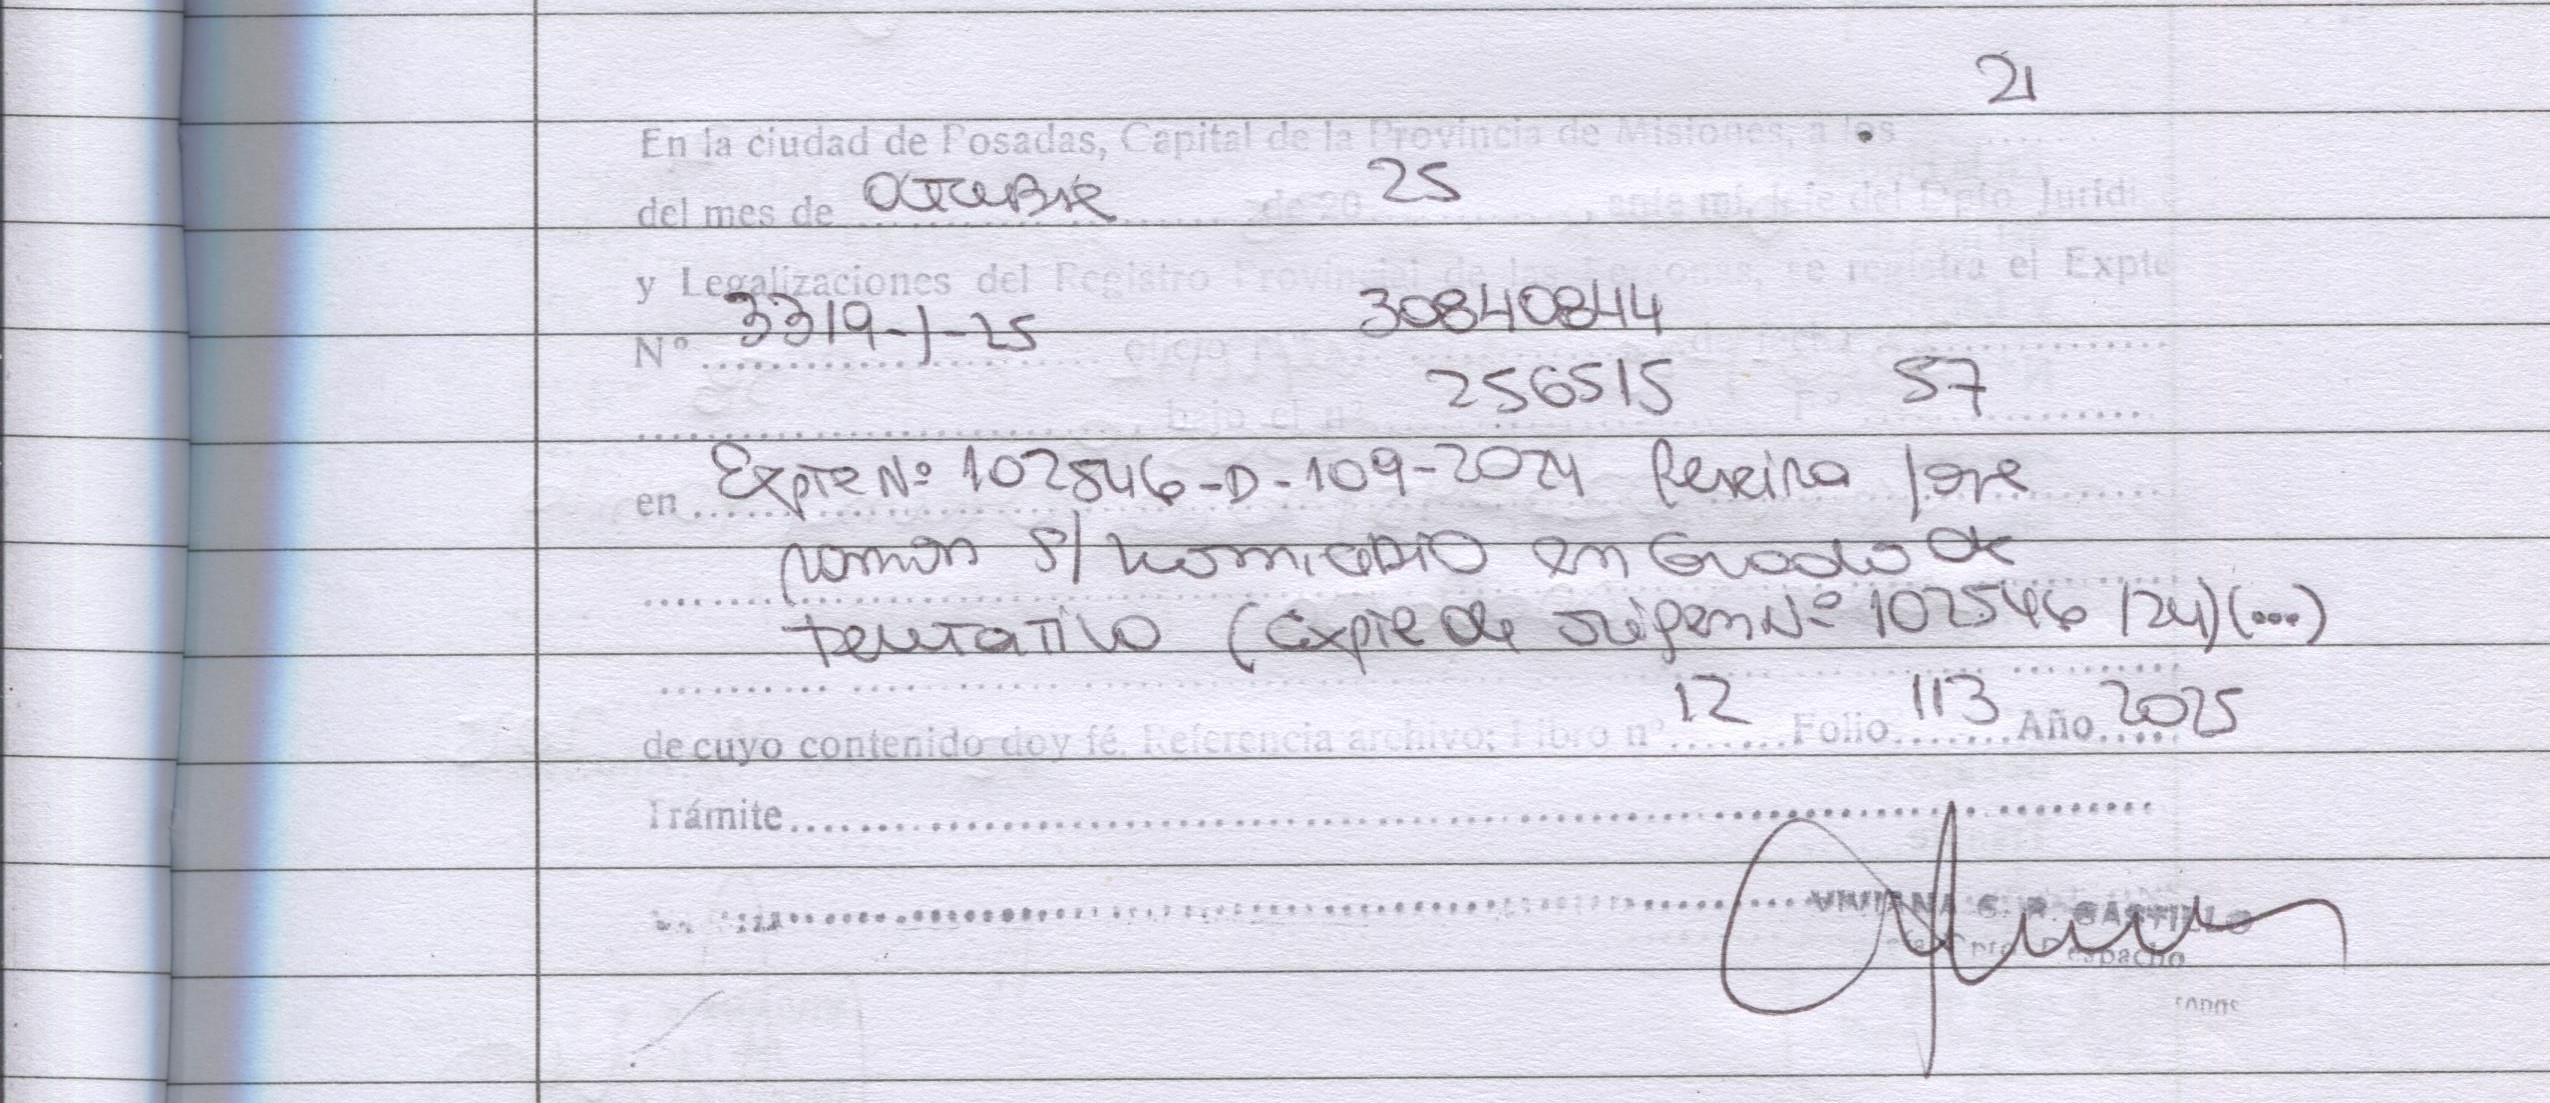 21
En la ciudad de Posadas, Capital de la Provincia de Misiones, a los
del mes de Octubre de 20 25, ante mi, Jefe del Dpto Juridi
y Legalizaciones del Registro Provincial de las Personas, se registra el Expte
Nº 3319-J-25 oficio Nº 30840844 de fecha
bajo el nº 256515 Fº 57
en Expte Nº 102546-D-109-2024 Pereira Jose
ramon S/ homicidio en Grado de
tentativa (Expte de origen Nº 102546/24)(...)
de cuyo contenido doy fé. Referencia archivo: Libro nº 12 Folio 113 Año 2025
Trámite
VIVIANA C. R. CASTILLO
Despacho